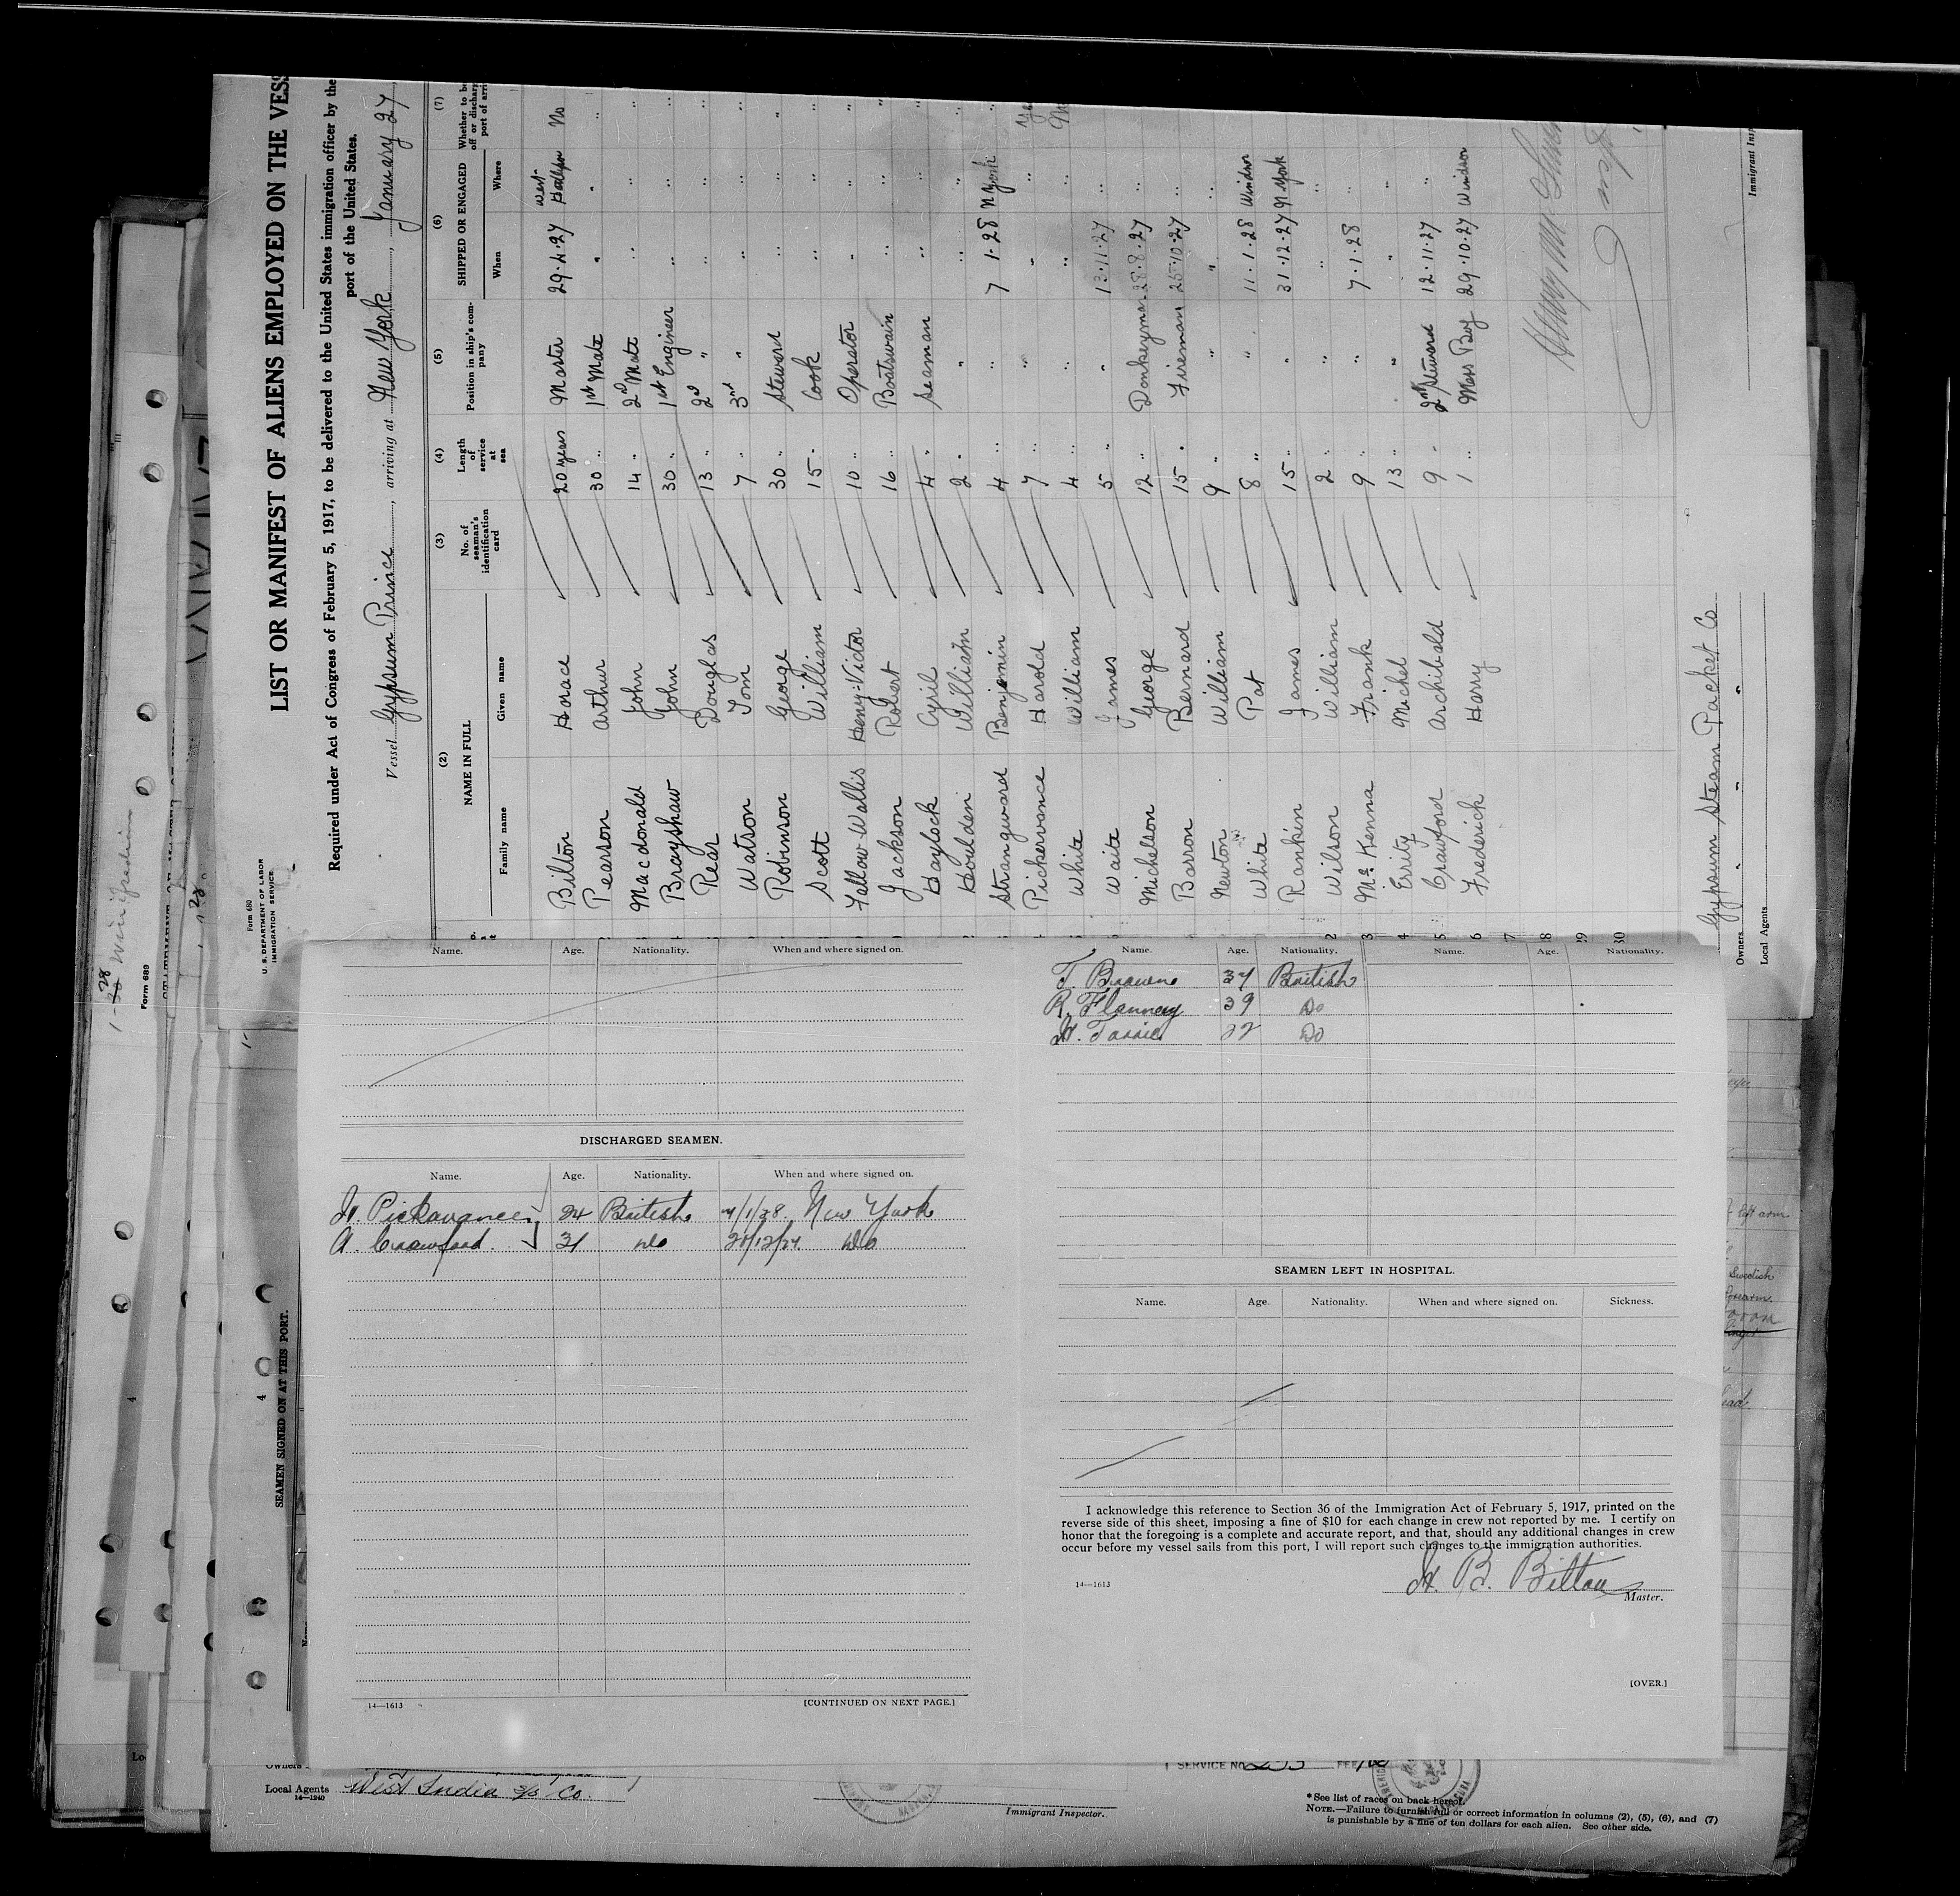 LIST OR MANIFEST OF ALIENS EMPLOYED ON THE VESS
Form 680
U. S. DEPARTMENT OF LABOR
IMMIGRATION SERVICE
Required under Act of Congress of February 5, 1917, to be delivered to the United States immigration officer by the
port of the United States.
Vessel Gypsum Prince, arriving at New York, January 27
(2) (3) (4) (5) (6) (7)
NAME IN FULL
Family name Given name
No. of seaman's identification card
Length of service at sea
Position in ship's company
SHIPPED OR ENGAGED
When Where
Whether to be
off or discharg
port of arri
Bilton Horace 20 years Master 29.4.27 West No
Pearson Arthur 30 " 1st Mate " " "
Macdonald John 14 " 2nd Mate " " "
Brayshaw John 30 " 1st Engineer " " "
Rear Douglas 13 " 2nd " " " "
Watson Tom 7 " 3rd " " " "
Robinson George 30 " Steward " " "
Scott William 15 " Cook " " "
Fallow-Wallis Henry-Victor 10 " Operator " " "
Jackson Robert 16 " Boatswain " " "
Haylock Cyril 4 " Seaman " " "
Houlden William 2 " " " " "
Strangward Benjamin 4 " " 7.1.28 N York "
Pickervance Harold 7 " " " " Ye
White William 4 " " " " N
Waite James 5 " " 12.11.27 "
Michelson George 12 " Donkeyman 28.8.27 "
Barron Bernard 15 " Fireman 25.10.27 "
Newton William 9 " " " "
White Pat 8 " " 11.1.28 Windsor
Rankin James 15 " " 31.12.27 N York
Wilson William 2 " " " "
McKenna Frank 9 " " 7.1.28 "
Errity Michel 13 " " " "
Crawford Archibald 9 " 2nd Steward 12.11.27 "
Frederick Harry 1 " Mess Boy 29.10.27 Windsor
Immigrant Insp
Owners Gypsum Steam Packet Co
Local Agents " " "
Form 689
SEAMEN SIGNED ON AT THIS PORT.
Name. Age. Nationality. When and where signed on.
DISCHARGED SEAMEN.
Name. Age. Nationality. When and where signed on.
H. Pickavance 24 British 7/1/28. New York
A. Crawford. 31 Do Do
14—1613
[CONTINUED ON NEXT PAGE.]
Name. Age. Nationality. Name. Age. Nationality.
T. Browne 37 British
R. Flannery 39 Do
Do
SEAMEN LEFT IN HOSPITAL.
Name. Age. Nationality. When and where signed on. Sickness.
I acknowledge this reference to Section 36 of the Immigration Act of February 5, 1917, printed on the
reverse side of this sheet, imposing a fine of $10 for each change in crew not reported by me. I certify on
honor that the foregoing is a complete and accurate report, and that, should any additional changes in crew
occur before my vessel sails from this port, I will report such changes to the immigration authorities.
14—1613
H. B. Bilton
Master.
[OVER.]
left arm
Swedish
forearm
Local Agents West India S/S Co.
14—1240
Immigrant Inspector.
SERVICE No. FEE
*See list of races on back hereof.
NOTE.—Failure to furnish full or correct information in columns (2), (5), (6), and (7)
is punishable by a fine of ten dollars for each alien. See other side.